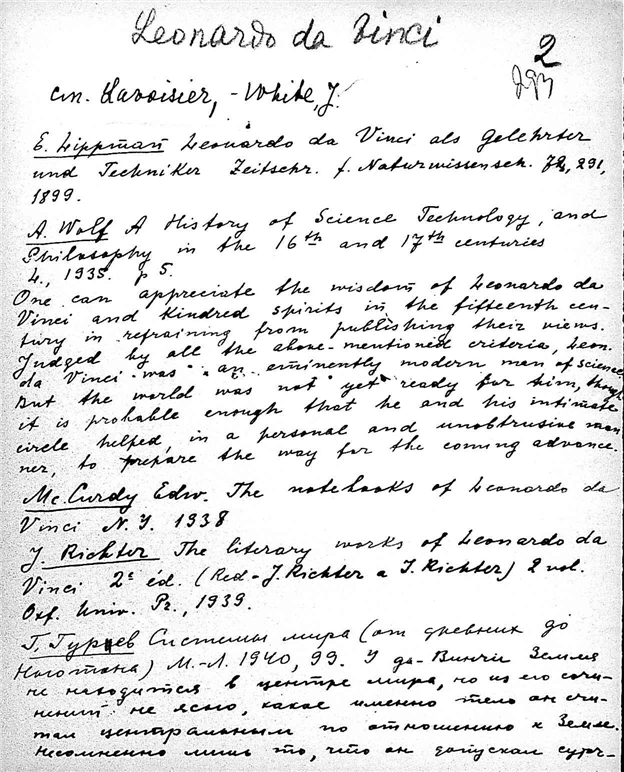 Leonardo da Vinci
2
см. Lavoisier, - White, J.
E. Lippmann Leonardo da Vinci als Gelehrter
und Techniker Zeitschr. f. Naturwissensch. 72, 291,
1899.
A. Wolf A History of Science Technology, and
Philosophy in the 16th and 17th centuries
L., 1935. p 5.
One can appreciate the wisdom of Leonardo da
Vinci and kindred spirits in the fifteenth cen-
tury in refraining from publishing their views.
Judged by all the above-mentioned criteria, Leon.
da Vinci was an eminently modern man of science
But the world was not yet ready for him, though
it is probable enough that he and his intimate
circle helped, in a personal and unobtrusive man
ner, to prepare the way for the coming advance.
Mc.Curdy Edw. The notebooks of Leonardo da
Vinci N.Y. 1938
J. Richter The literary works of Leonardo da
Vinci 2e éd. (Red- J. Richter a I. Richter) 2 vol.
Oxf. Univ. Pr., 1939.
Г. Гурев Системы мира (от древних до
Ньютона) М.-Л. 1940, 99. У да-Винчи Земля
не находится в центре мира, но из его сочи-
нений не ясно, какое именно тело он счи-
тал центральным по отношению к Земле.
Несомненно лишь то, что он допускал сущ-